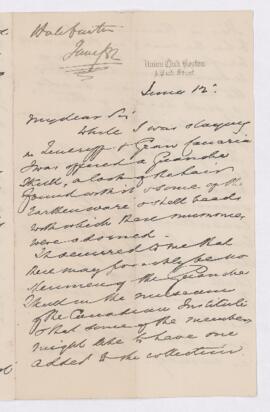 Union Club Boston
8 Park Street
June 12
My dear Sir
While I was staying
in Teneriff & Gran Canaria
I was offered a Guanche
Skull, a lock of the hair
found with it & some of the
earthenware & shell beads
with which these mummies
were adorned.
It occurred to me that
there may possibly be no
specimen of the Guanche
Skull in the museum
of the Canadian Institute
& that some of the members
might like to have one
added to the collection